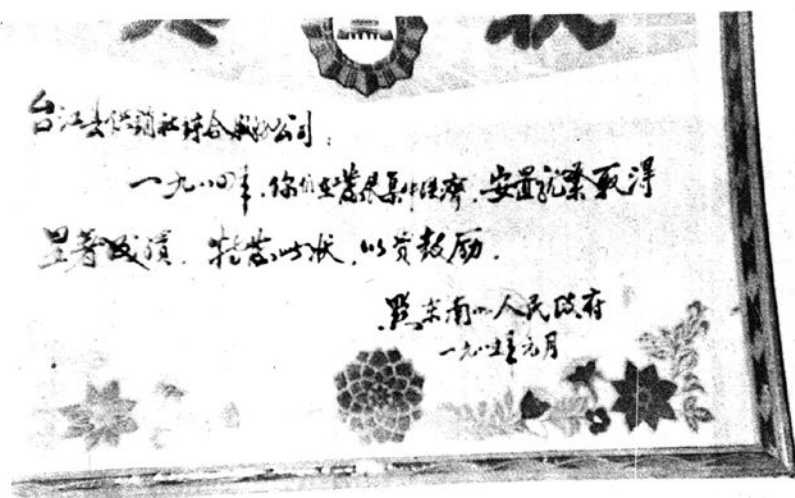 台江县供销社综合服务公司：
一九八四年，你们在发展集体经济、安置就业取得
显著成绩，特发此状，以资鼓励。
黔东南州人民政府
一九八五年元月